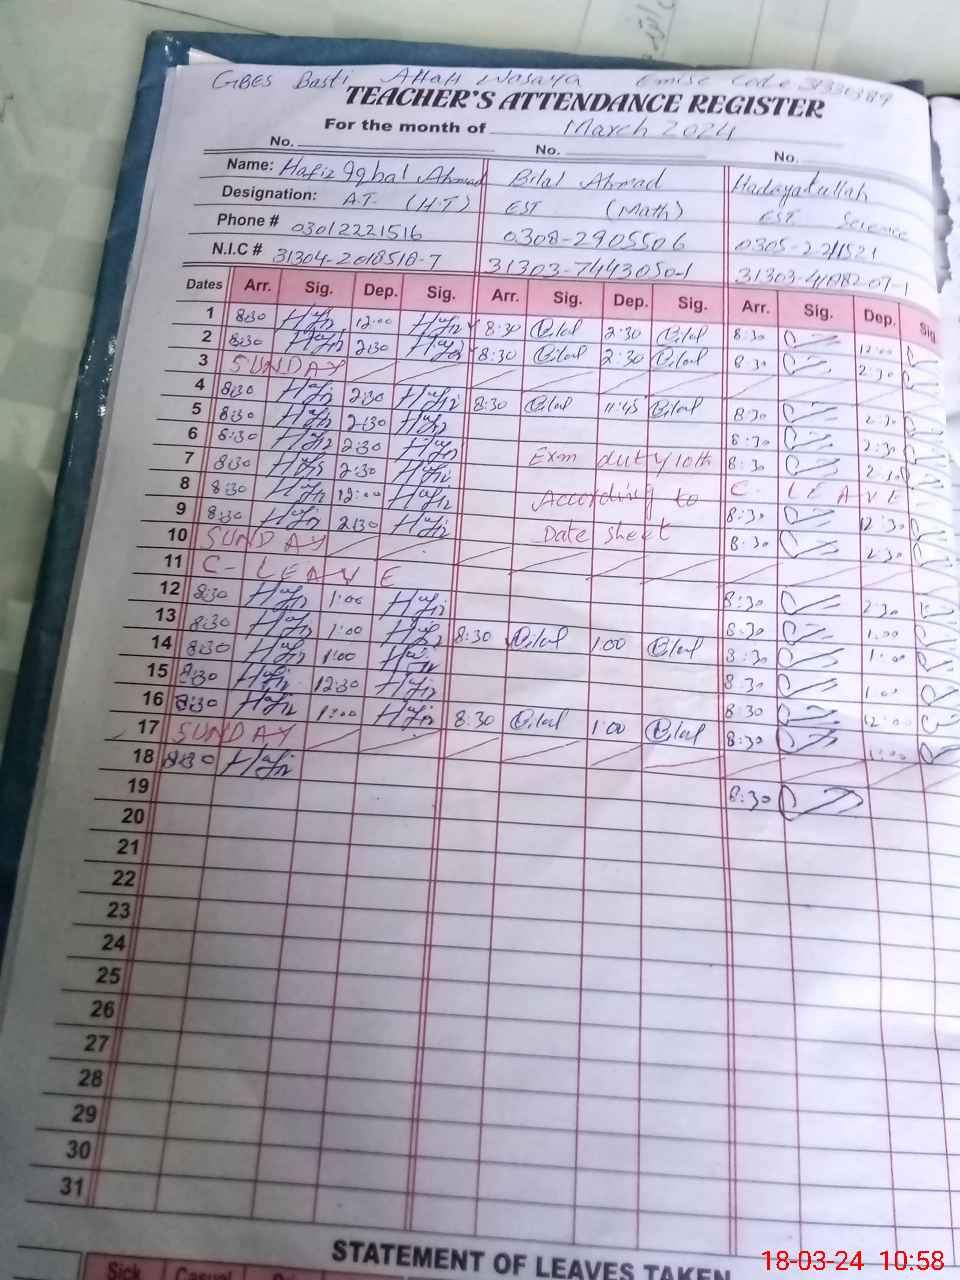 GBES Basti Allah Wasaya Emise Code 31330389
TEACHER'S ATTENDANCE REGISTER
For the month of March 2024
No. No. No.
Name: Hafiz Iqbal Ahmad Bilal Ahmad Hadayatullah
Designation: A.T. (H.T) EST (Math) EST Science
Phone # 03012221516 0308-2905506
N.I.C # 31304-2018518-7 31303-7443050-1
Dates Arr. Sig. Dep. Sig. Arr. Sig. Dep. Sig. Arr. Sig. Dep. Sig
1 8:30 Hafiz 12:00 Hafiz 8:30 Bilal 2:30 Bilal 8:30 12:00
2 8:30 Hafiz 2:30 Hafiz 8:30 Bilal 2:30 Bilal 8:30 2:30
3 SUNDAY
4 8:30 Hafiz 2:30 Hafiz 8:30 Bilal 11:45 Bilal 8:30 2:30
5 8:30 Hafiz 2:30 Hafiz 8:30 2:30
6 8:30 Hafiz 2:30 Hafiz Exm duty 10th 8:30
7 8:30 Hafiz 2:30 Hafiz C- LEAVE
8 8:30 Hafiz 12:00 Hafiz According to 8:30 12:30
9 8:30 Hafiz 2:30 Hafiz Date sheet 8:30 2:30
10 SUNDAY
11 C- LEAVE 8:30 2:30
12 8:30 Hafiz 1:00 Hafiz 8:30 1:00
13 8:30 Hafiz 1:00 Hafiz 8:30 Bilal 1:00 Bilal 8:30 1:00
14 8:30 Hafiz 1:00 Hafiz 8:30 1:00
15 8:30 Hafiz 12:30 Hafiz 8:30 12:00
16 8:30 Hafiz 1:00 Hafiz 8:30 Bilal 1:00 Bilal 8:30
17 SUNDAY
18 8:30 Hafiz 8:30
19
20
21
22
23
24
25
26
27
28
29
30
31
STATEMENT OF LEAVES TAKEN
Sick Casual
18-03-24 10:58